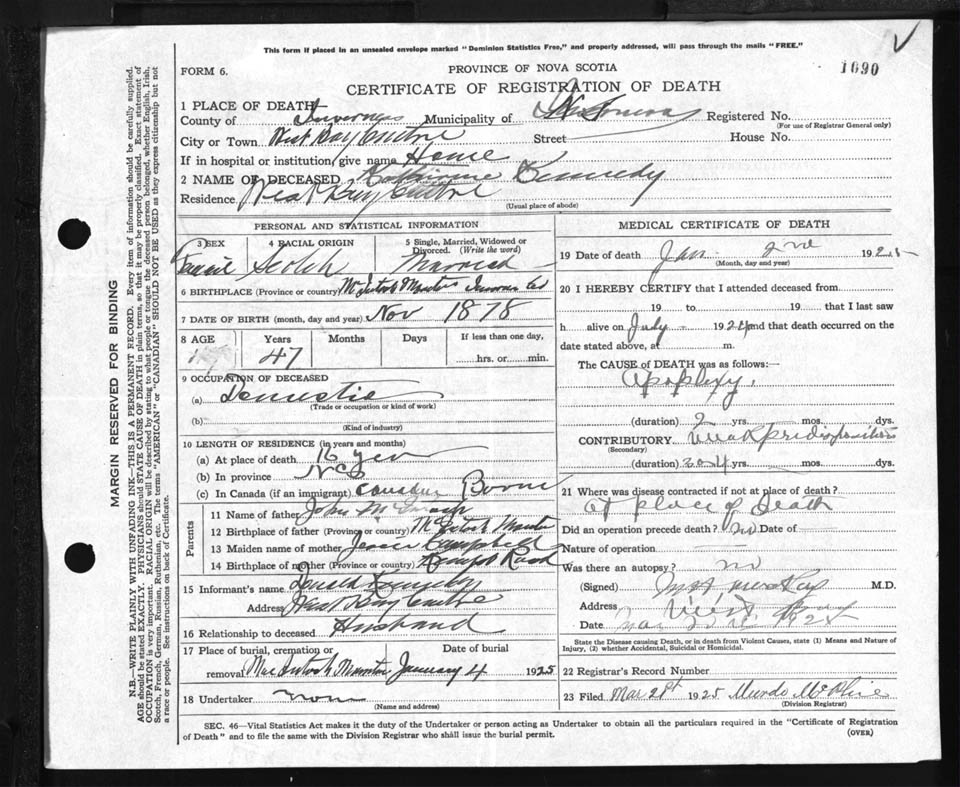 This form if placed in an unsealed envelope marked "Dominion Statistics Free," and properly addressed, will pass through the mails "FREE."
FORM 6.
PROVINCE OF NOVA SCOTIA
1090
CERTIFICATE OF REGISTRATION OF DEATH
1 PLACE OF DEATH
County of Inverness Municipality of Registered No.
(For use of Registrar General only)
City or Town West Bay Centre Street House No.
If in hospital or institution, give name Home
2 NAME OF DECEASED Catherine Kennedy
Residence West Bay Centre
(Usual place of abode)
PERSONAL AND STATISTICAL INFORMATION
3 SEX 4 RACIAL ORIGIN 5 Single, Married, Widowed or Divorced. (Write the word)
Scotch Married
6 BIRTHPLACE (Province or country) McIntosh Mountain
7 DATE OF BIRTH (month, day and year) Nov 1878
8 AGE Years Months Days If less than one day,
47 hrs. or min.
9 OCCUPATION OF DECEASED
(a) Domestic
(Trade or occupation or kind of work)
(b)
(Kind of industry)
10 LENGTH OF RESIDENCE (in years and months)
(a) At place of death 16
(b) In province
(c) In Canada (if an immigrant) Born
Parents
11 Name of father John
12 Birthplace of father (Province or country) McIntosh
13 Maiden name of mother Jessie Campbell
14 Birthplace of mother (Province or country) Road
15 Informant's name Donald Kennedy
Address West Bay Centre
16 Relationship to deceased Husband
17 Place of burial, cremation or removal Date of burial
MacIntosh Mountain January 4 1925
18 Undertaker none
(Name and address)
MEDICAL CERTIFICATE OF DEATH
19 Date of death Jan 2nd 1925
(Month, day and year)
20 I HEREBY CERTIFY that I attended deceased from
19 to 19 that I last saw
h alive on July 1924 and that death occurred on the
date stated above, at m.
The CAUSE OF DEATH was as follows:—
Apoplexy.
(duration) 2 yrs. mos. dys.
CONTRIBUTORY weak predisposition
(Secondary)
(duration) 3 or 4 yrs. mos. dys.
21 Where was disease contracted if not at place of death?
at place of Death
Did an operation precede death? no Date of
Nature of operation
Was there an autopsy? no
(Signed) M.D.
Address West Bay
Date 1925
State the Disease causing Death, or in death from Violent Causes, state (1) Means and Nature of
Injury, (2) whether Accidental, Suicidal or Homicidal.
22 Registrar's Record Number
23 Filed 1925 Murdo
(Division Registrar)
SEC. 46—Vital Statistics Act makes it the duty of the Undertaker or person acting as Undertaker to obtain all the particulars required in the "Certificate of Registration
of Death" and to file the same with the Division Registrar who shall issue the burial permit.
(OVER)
MARGIN RESERVED FOR BINDING
N.B.—WRITE PLAINLY WITH UNFADING INK—THIS IS A PERMANENT RECORD. Every item of information should be carefully supplied.
AGE should be stated EXACTLY. PHYSICIANS should STATE CAUSE OF DEATH in plain terms, so that it may be properly classified. Exact statement of
OCCUPATION is very important. RACIAL ORIGIN will be described by stating to what people or tongue the deceased person belonged, whether English, Irish,
Scotch, French, German, Russian, Ruthenian, etc. The terms "AMERICAN" or "CANADIAN" SHOULD NOT BE USED as they express citizenship but not
a race or people. See instructions on back of Certificate.